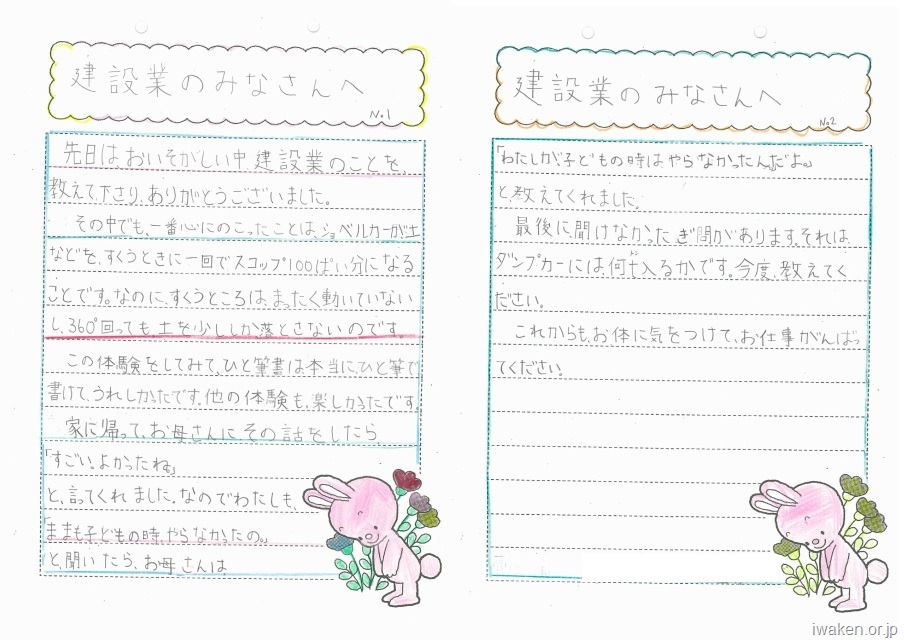 建設業のみなさんへ
No.1
先日は、おいそがしい中建設業のことを、
教えて下さり、ありがとうございました。
その中でも、一番心にのこったことは、ショベルカーが土
などを、すくうときに一回でスコップ100ぱい分になる
ことです。なのに、すくうところは、まったく動いていない
し、360°回っても土を少ししか落とさないのです。
この体験をしてみて、ひと筆書は本当に、ひと筆で
書けて、うれしかったです。他の体験も、楽しかったです。
家に帰って、お母さんにその話をしたら、
「すごい。よかったね。」
と、言ってくれました。なのでわたしも、
「ままも子どもの時、やらなかったの。」
と、聞いたら、お母さんは
建設業のみなさんへ
No.2
「わたしが子どもの時はやらなかったんだよ。」
と、教えてくれました。
最後に、聞けなかったぎ問があります。それは、
ダンプカーには、何t入るかです。今度、教えてく
トン
ださい。
これからも、お体に気をつけて、お仕事がんばっ
てください。
iwaken.or.jp